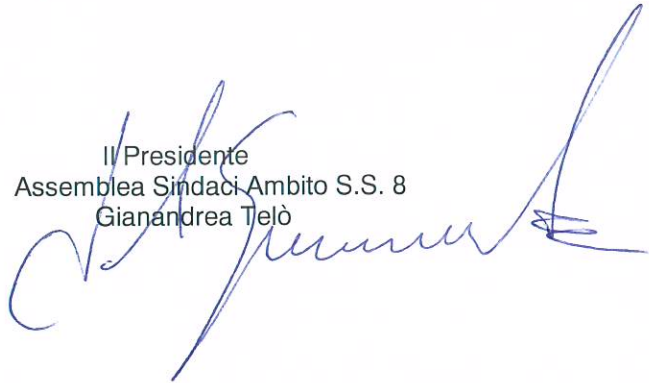 Il Presidente
Assemblea Sindaci Ambito S.S. 8
Gianandrea Telò